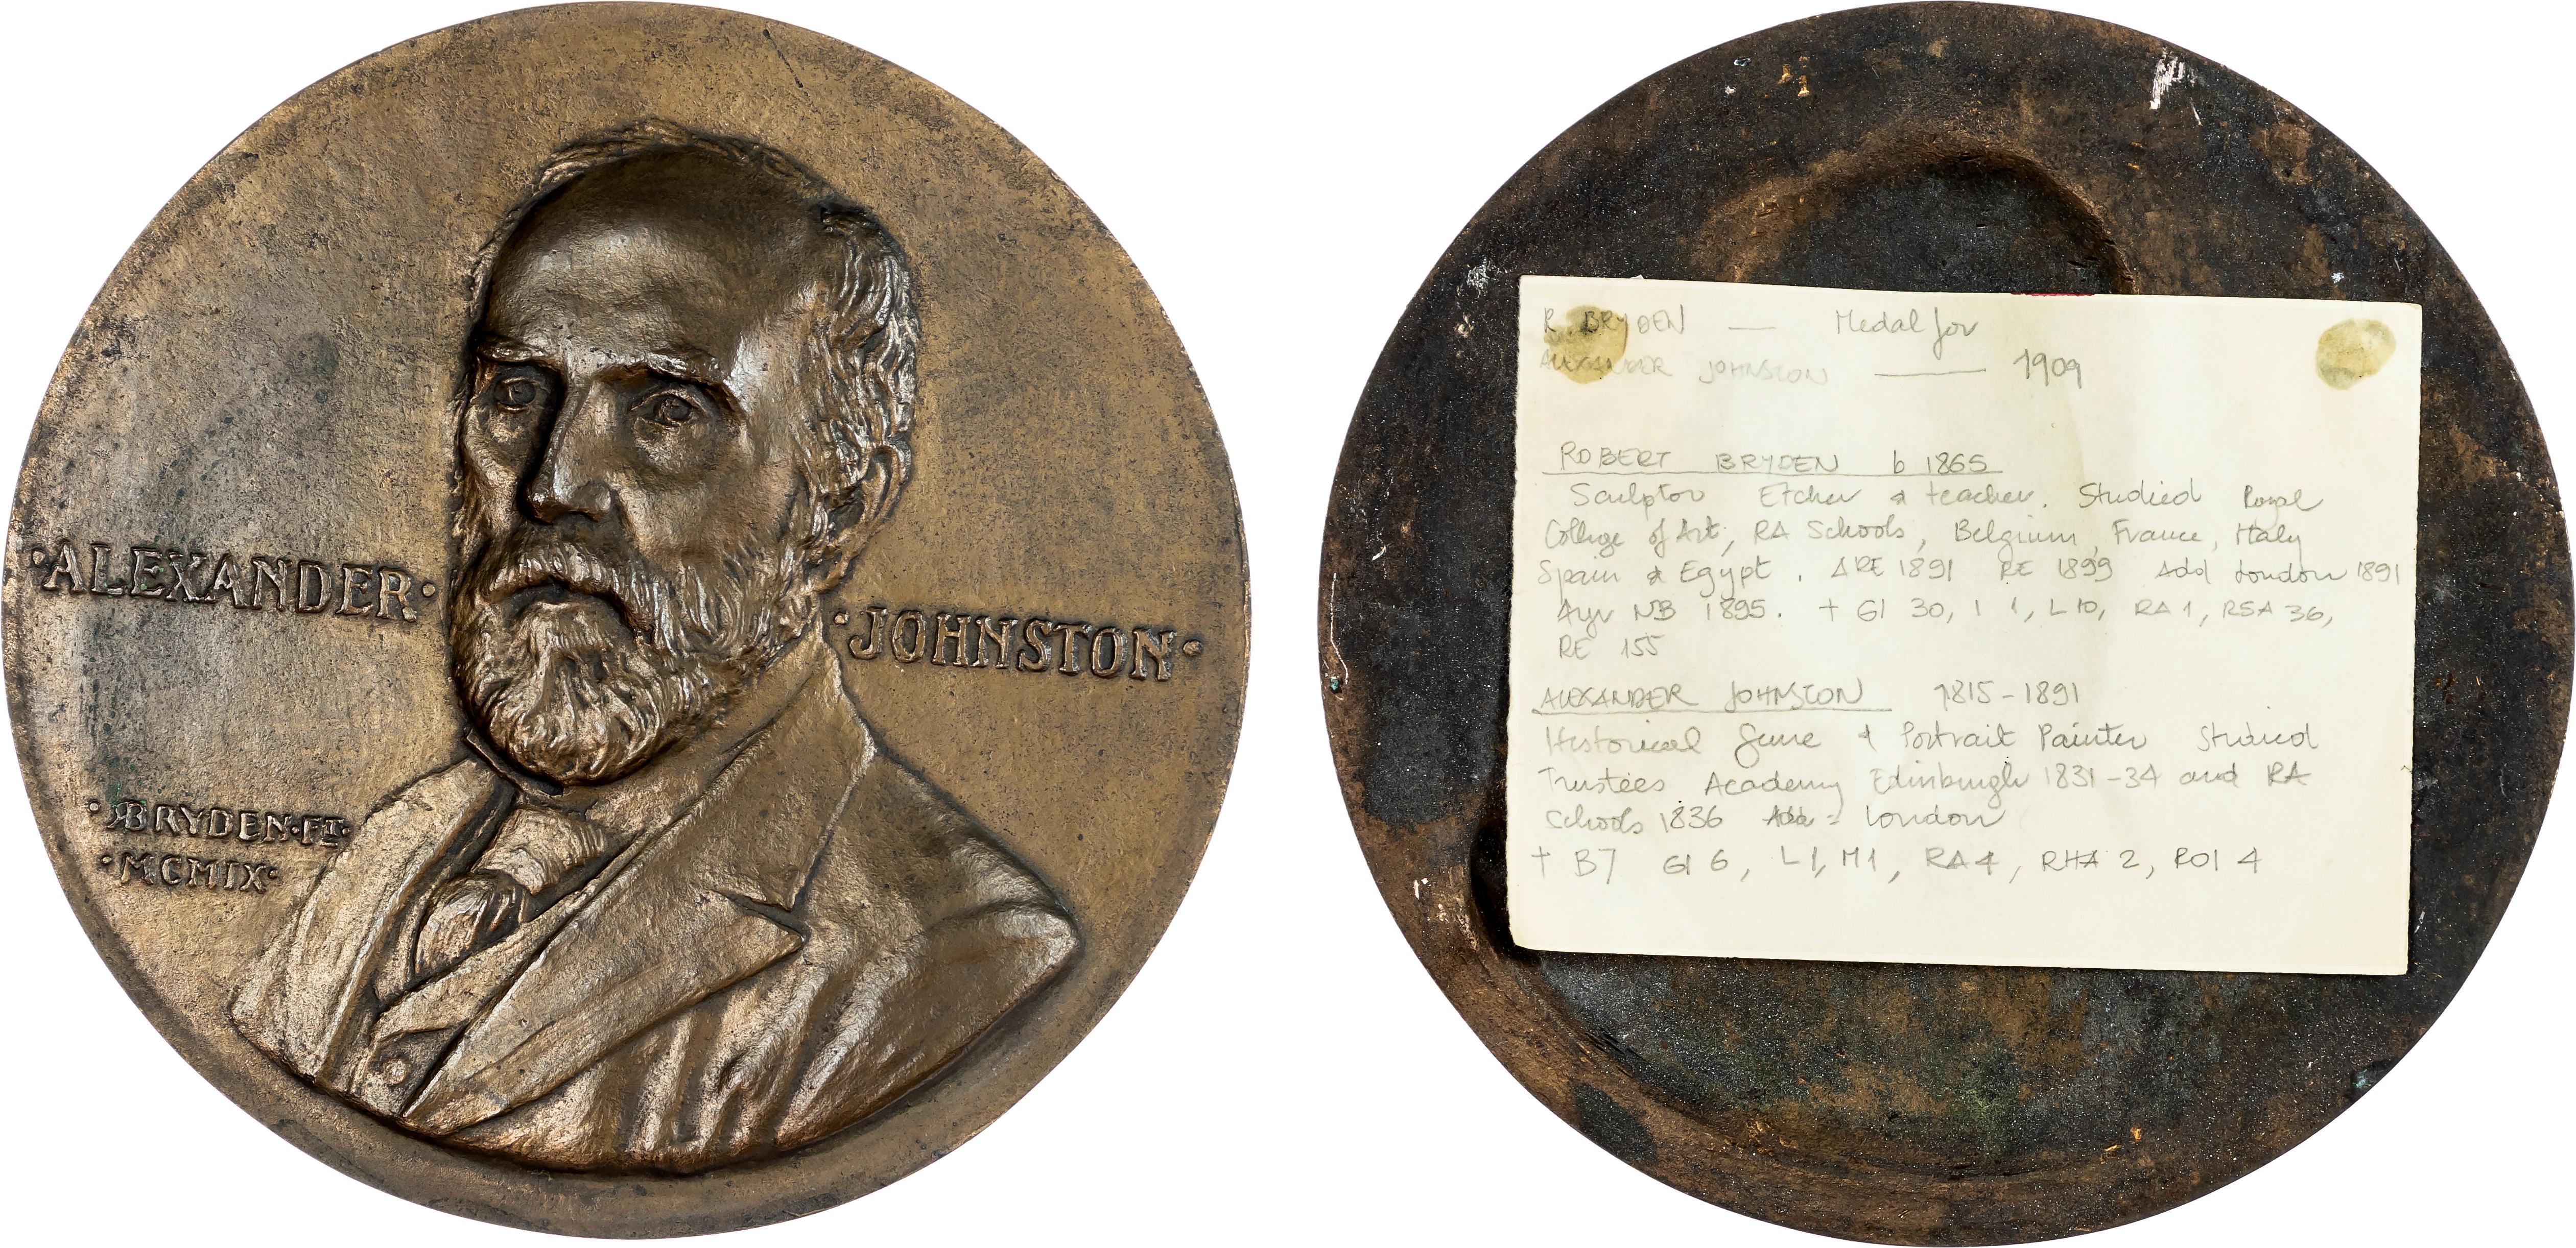 ·ALEXANDER·
·JOHNSTON·
·RBRYDEN·FT·
·MCMIX·
R. BRYDEN — Medal for
ALEXANDER JOHNSTON — 1909
ROBERT BRYDEN b 1865
Sculptor Etcher & teacher. Studied Royal
College of Art, RA Schools, Belgium, France, Italy
Spain & Egypt. ARE 1891 RE 1899 Add London 1891
Ayr NB 1895. † GI 30, I 1, L 10, RA 1, RSA 36,
RE 155
ALEXANDER JOHNSTON 1815-1891
Historical Genre & Portrait Painter Studied
Trustees Academy Edinburgh 1831-34 and RA
Schools 1836 Add = London
† B7 GI 6, L 1, M 1, RA 4, RHA 2, ROI 4